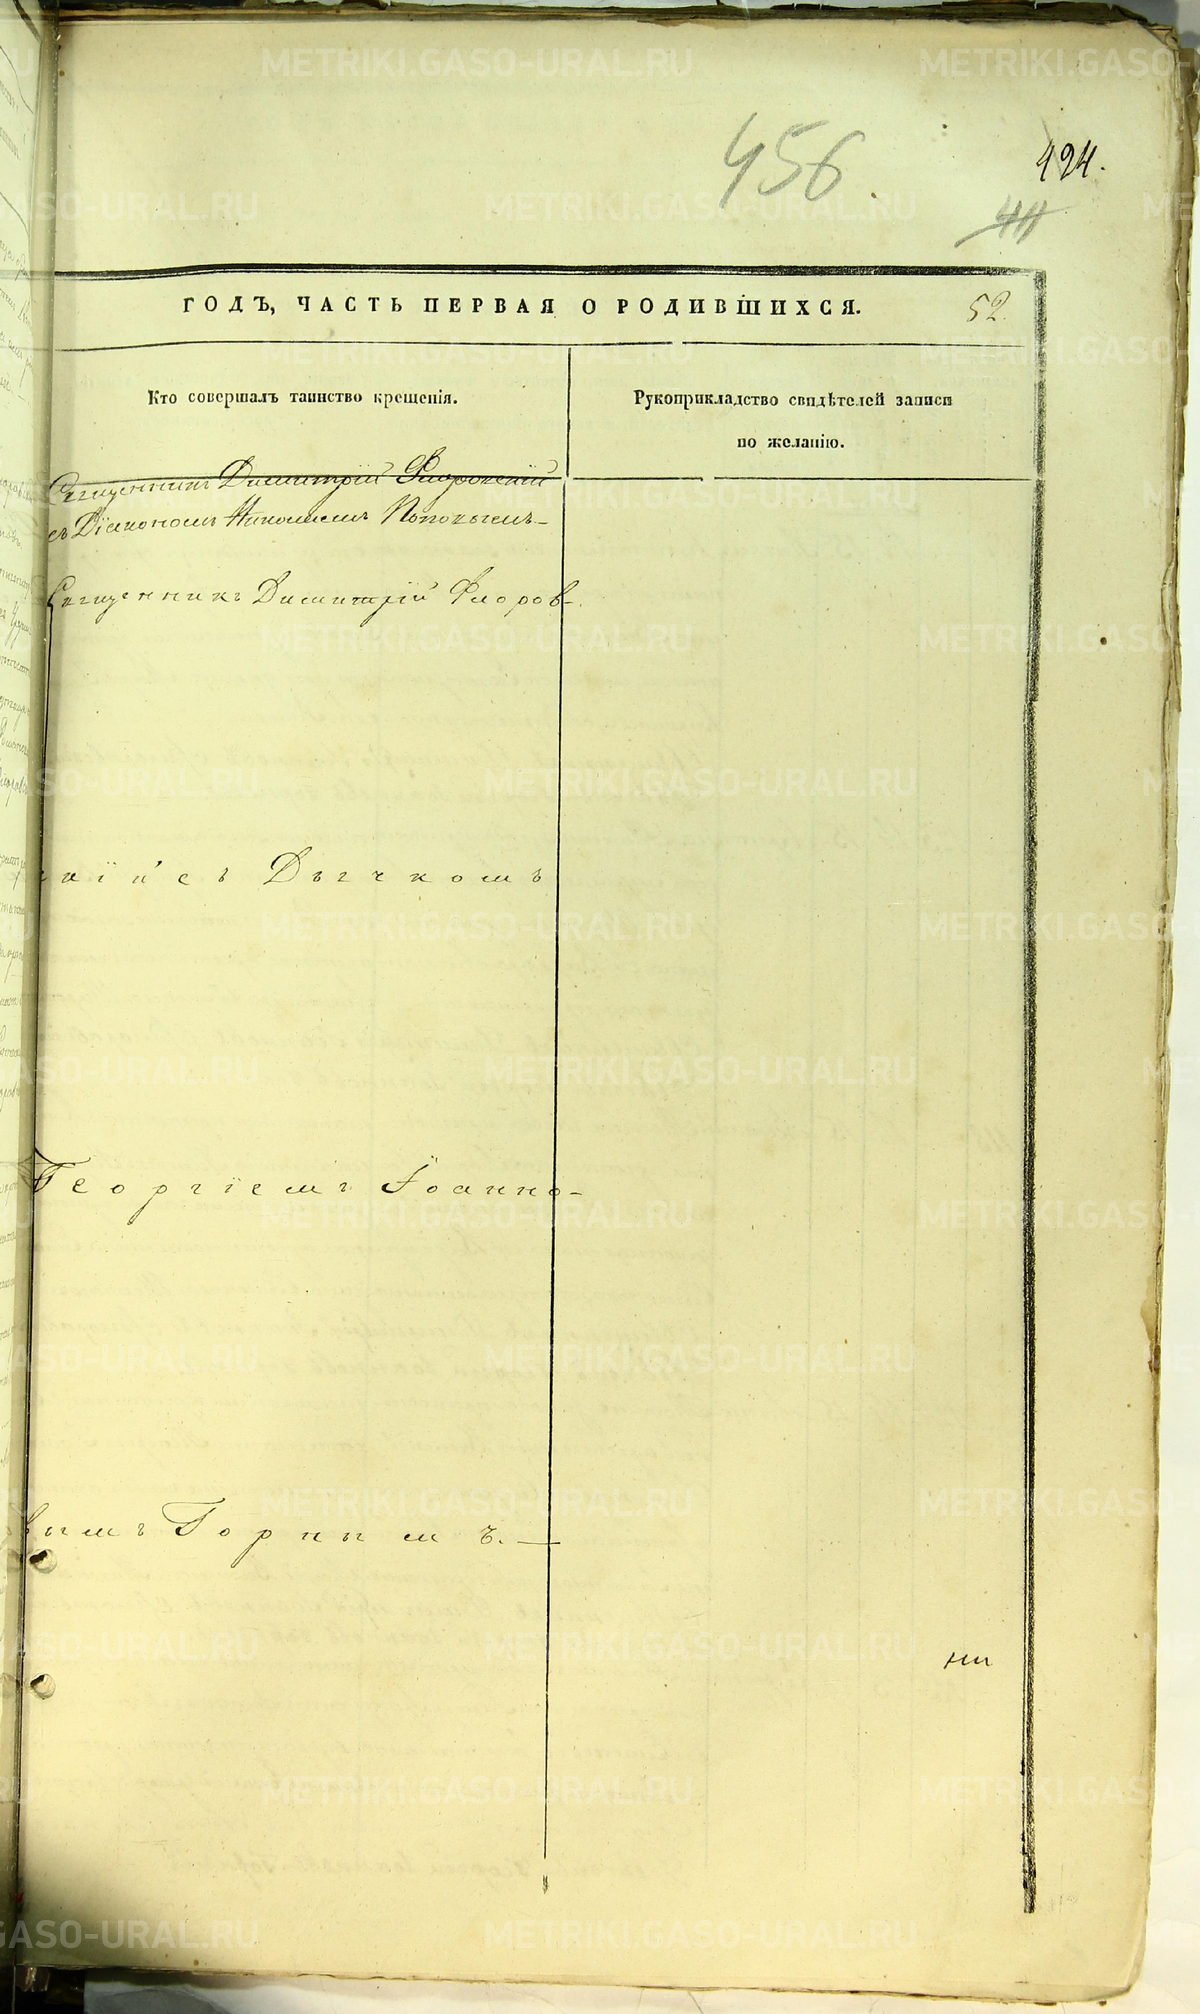 456
494.
ГОДЪ, ЧАСТЬ ПЕРВАЯ О РОДИВШИХСЯ.
52.
Кто совершалъ таинство крещенія.
Рукоприкладство свидѣтелей записи
по желанію.
Священникъ Димитрій Флоровскій
съ Діакономъ Николаемъ Поповымъ
Священникъ Димитрій Флоров-
скій съ Дьячкомъ
Георгіемъ Іоанно-
вымъ Горнымъ.
METRIKI.GASO-URAL.RU